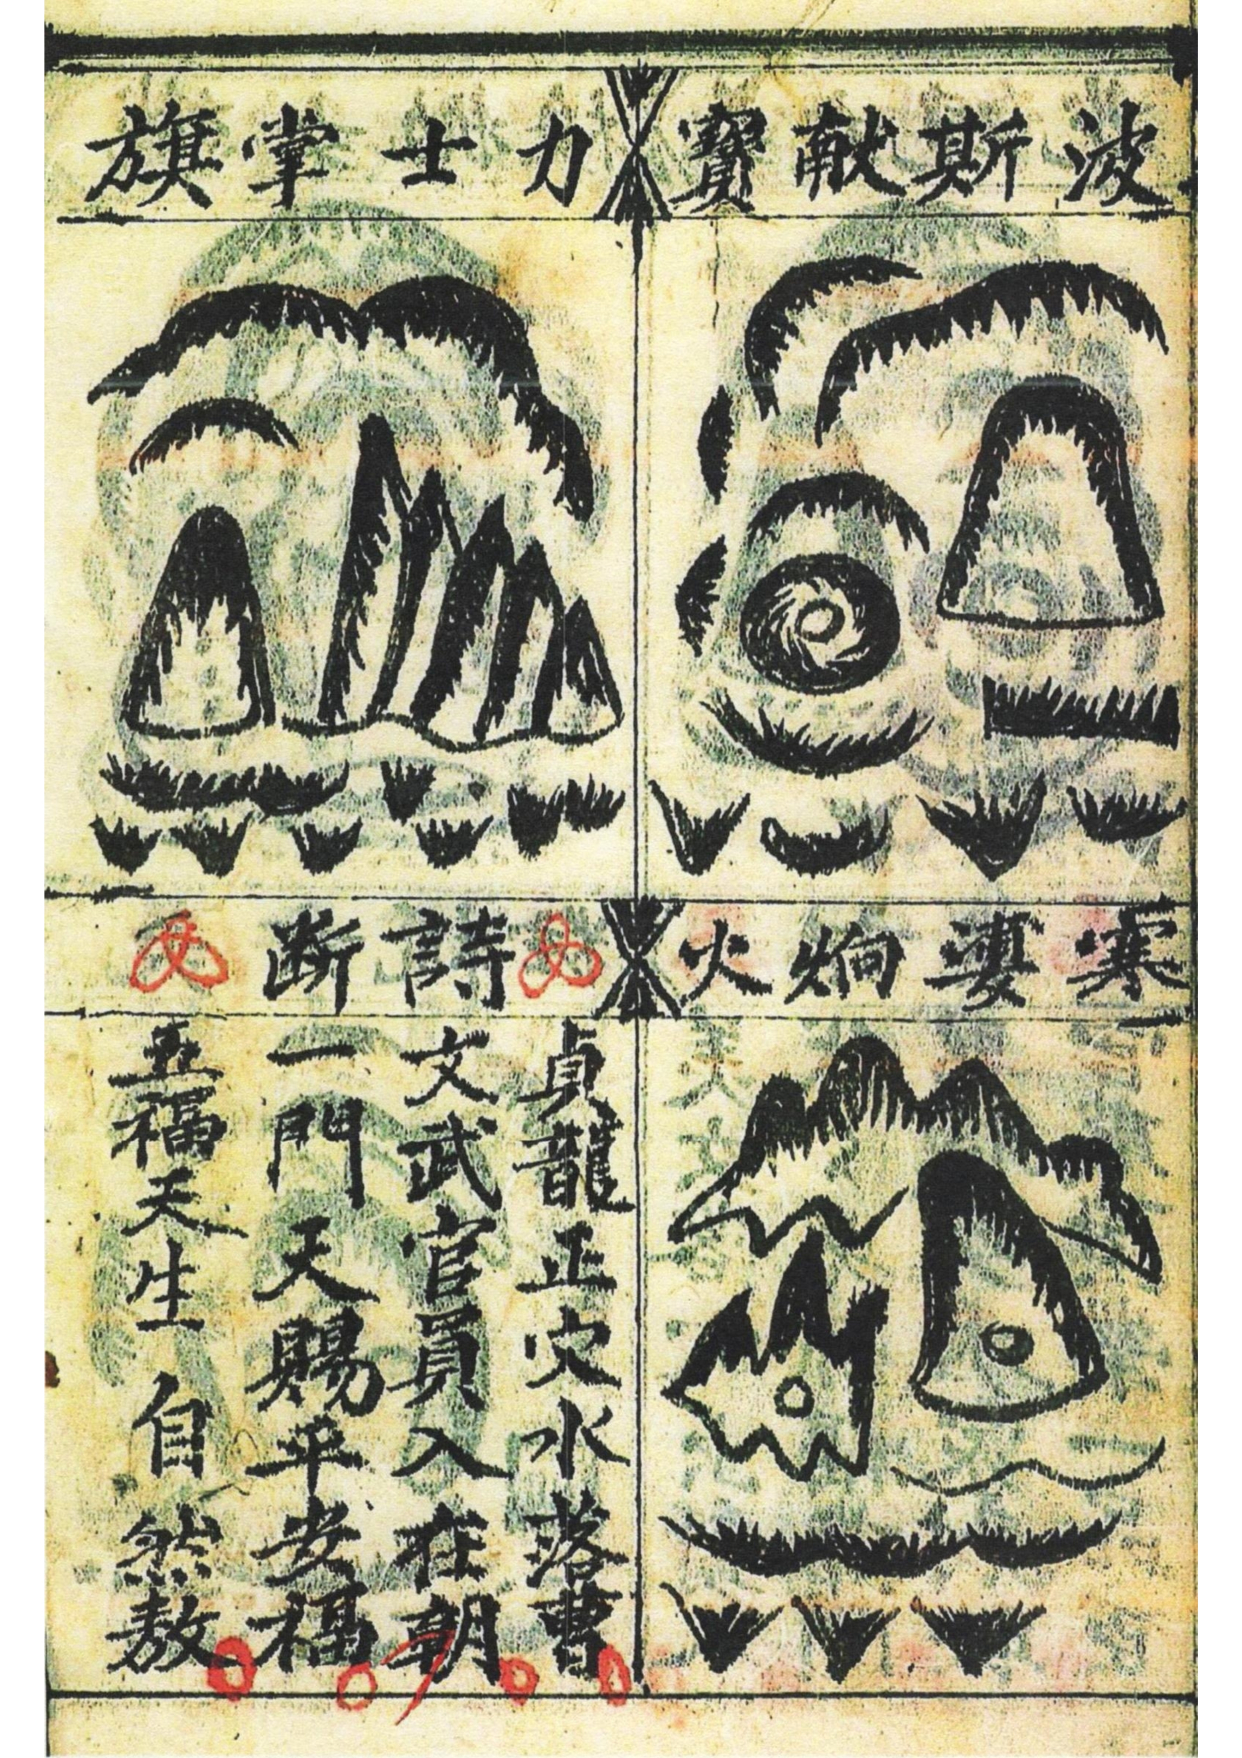 波斯献寳
力士掌旗
寒婆炯火
詩断
貞龍正穴水落曹
文武官員入在朝
一門天賜平安福
五福天生自然敖